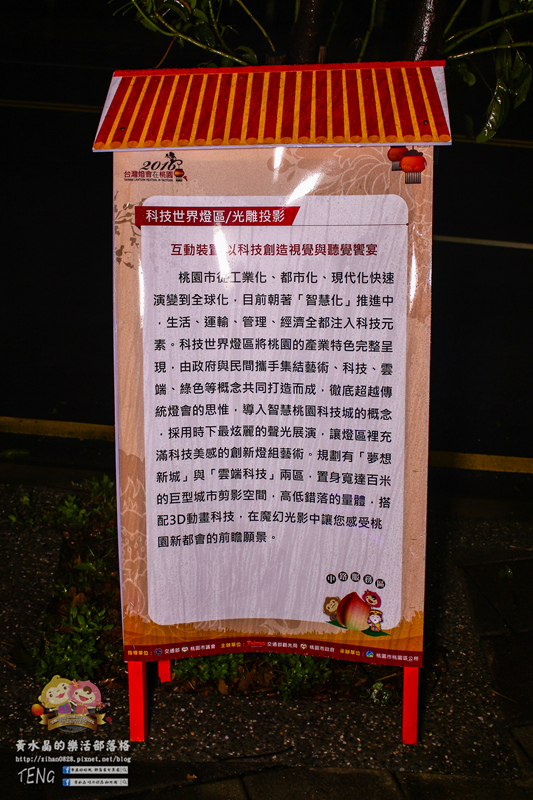 2016
台灣燈會在桃園
科技世界燈區/光雕投影
互動裝置 以科技創造視覺與聽覺饗宴
桃園市從工業化、都市化、現代化快速
演變到全球化，目前朝著「智慧化」推進中
，生活、運輸、管理、經濟全都注入科技元
素。科技世界燈區將桃園的產業特色完整呈
現，由政府與民間攜手集結藝術、科技、雲
端、綠色等概念共同打造而成，徹底超越傳
統燈會的思惟，導入智慧桃園科技城的概念
，採用時下最炫麗的聲光展演，讓燈區裡充
滿科技美感的創新燈組藝術。規劃有「夢想
新城」與「雲端科技」兩區，置身寬達百米
的巨型城市剪影空間，高低錯落的量體，搭
配3D動畫科技，在魔幻光影中讓您感受桃
園新都會的前瞻願景。
中路服務區
指導單位： 交通部 桃園市議會 主辦單位： 交通部觀光局 桃園市政府 承辦單位： 桃園市桃園區公所
黃水晶的樂活部落格
http://sihan0828.pixnet.net/blog
TENG